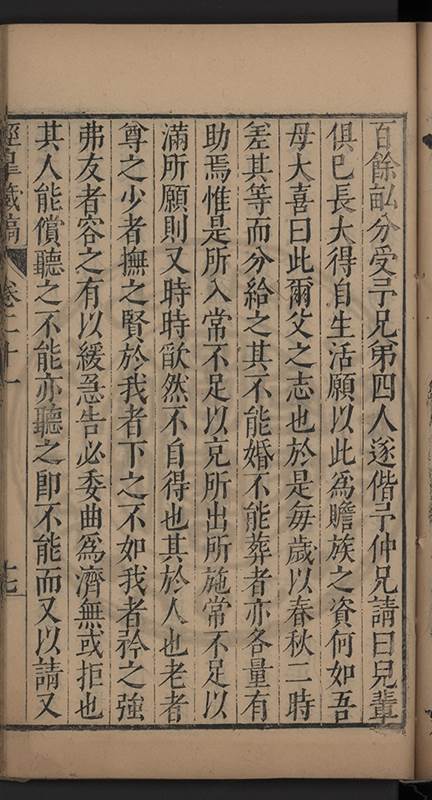 百餘畆分受予兄弟四人遂偕予仲兄請曰兒輩
俱巳長大得自生活願以此爲贍族之資何如吾
母大喜曰此爾父之志也於是每歲以春秋二時
差其等而分給之其不能婚不能葬者亦各量有
助焉惟是所入常不足以克所出所施常不足以
滿所願則又時時歉然不自得也其於人也老者
尊之少者撫之賢於我者下之不如我者矜之強
弗友者容之有以緩急告必委曲爲濟無或拒也
其人能償聽之不能亦聽之卽不能而又以請又
涇皐藏稿
卷二十一
十七